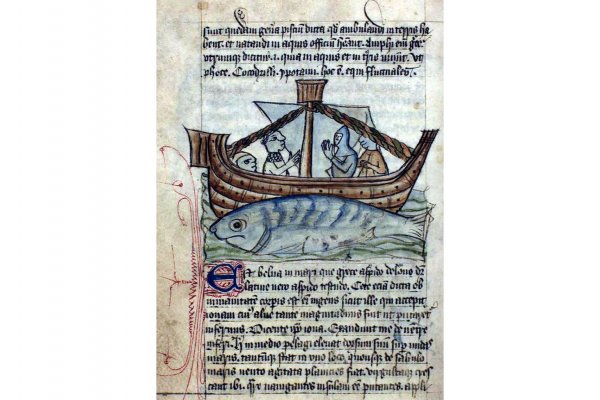 sunt quedam gena pisciu dicta qd ambulandi in terris ha
bent. et natandi in aquis officiu Amphi em gre
dicitur .i. quia in aquis et in tris vivut. Vt
phoce. Cocodrilli. ypotami. hoc e. equi fluctuales.
Est belua in mari que grece aspido delone dr
latine vero aspido testudo. Cete ecia dicta ob
inmanitate corpis est em ingens sicut ille qui excepit
ionam cui alvus tante magnitudinis fuit ut putaret
infernus. Dicente ipo iona. Exaudivit me de ventre
inferi. H in medio pelagi elevat dorsum suu sup undas
maris. tantumque stat in uno loco. quousque de sabulo
maris vento agitata planicies fiat. virgultaque cres
cant ibi. navigantes insulam ee putantes. appli